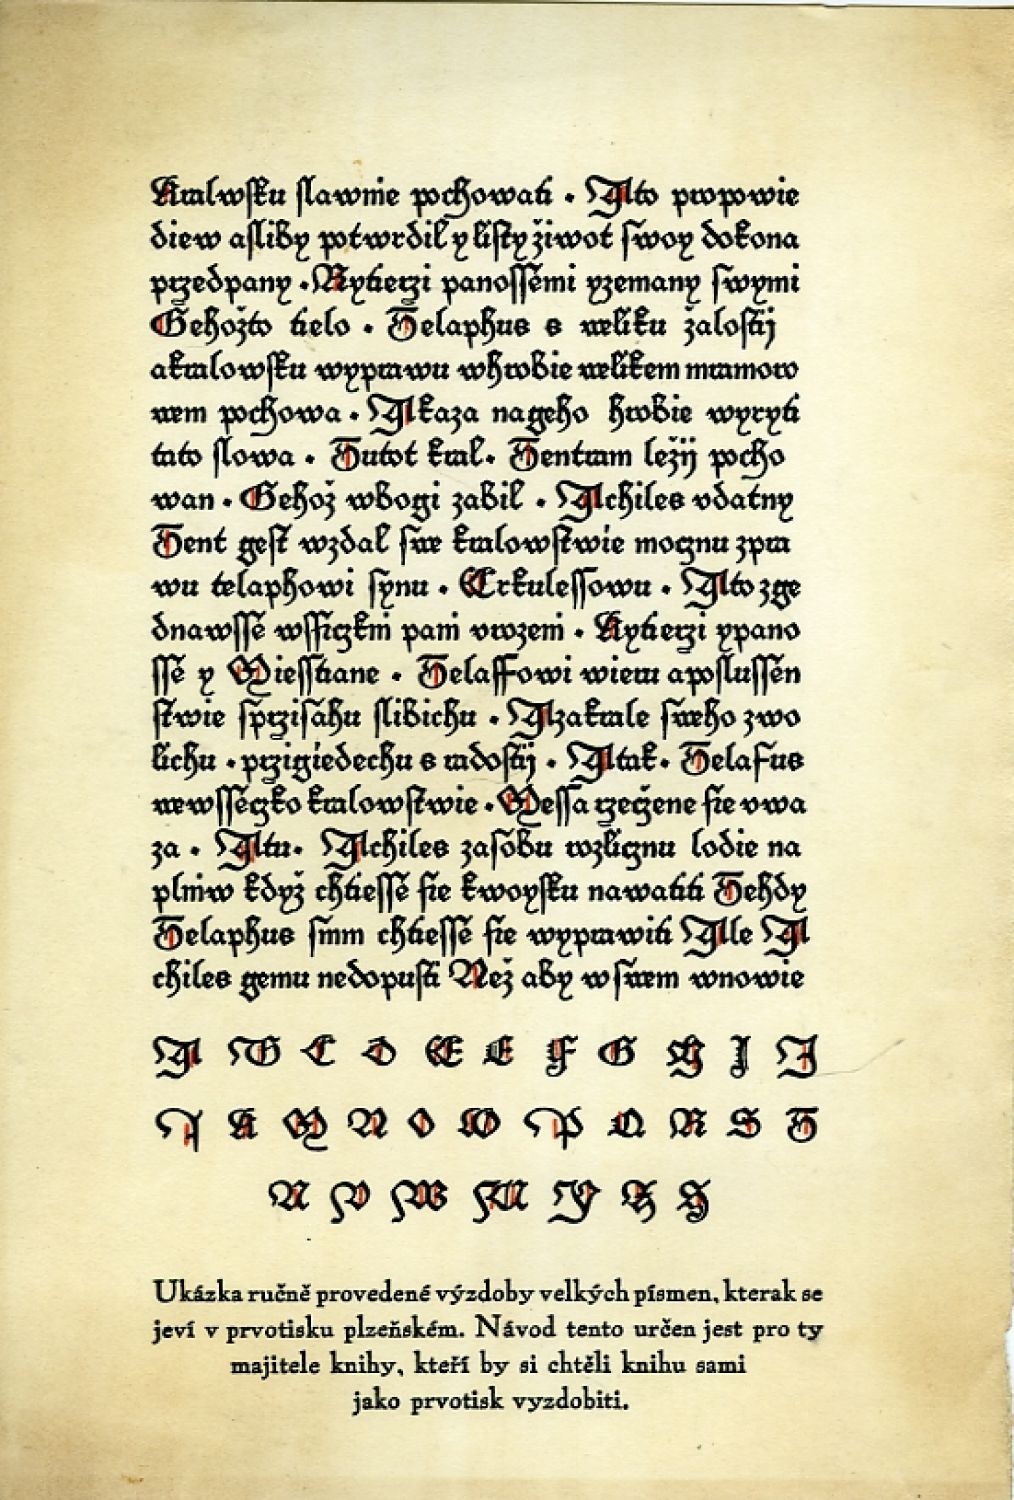 Kralwsku slawnie pochowati · A to propowie
diew asliby potwrdil y listy žiwot swoy dokona
przedpany · Rytierzi panossemi yzemany swymi
Gehožto tielo · Telaphus s weliku žalostij
akralowsku wyprawu whrobie welikem mramoro
wem pochowa · A kaza nageho hrobie wyryti
tato slowa · Tutot kral · Tentram ležij pocho
wan · Gehož wbogi zabil · Achiles vdatny
Tent gest wzdal swe kralowstwie mocznu zpra
wu telaphowi synu · Erkulessowu · A to zge
dnawsse wssiczkni pani vrozeni · Rytierzi ypano
sse y Miesstiane · Telaffowi wieru aposlussen
stwie sprzisahu slibichu · A zakrale sweho zwo
lichu · przigiedechu s radostij · A tak · Telafus
wewsseczko kralowstwie · Messa rzeczene sie vwa
za · A tu · Achiles zasobu rozlicznu lodie na
plniw když chtiesse sie kwoysku nawratiti Tehdy
Telaphus snim chtiesse sie wyprawiti Ale A
chiles gemu nedopusti Než aby wswem wnowie
A B C D E E F G H I J
J K M N O O P Q R S T
U V W W Y Z Z
Ukázka ručně provedené výzdoby velkých písmen, kterak se
jeví v prvotisku plzeňském. Návod tento určen jest pro ty
majitele knihy, kteří by si chtěli knihu sami
jako prvotisk vyzdobiti.